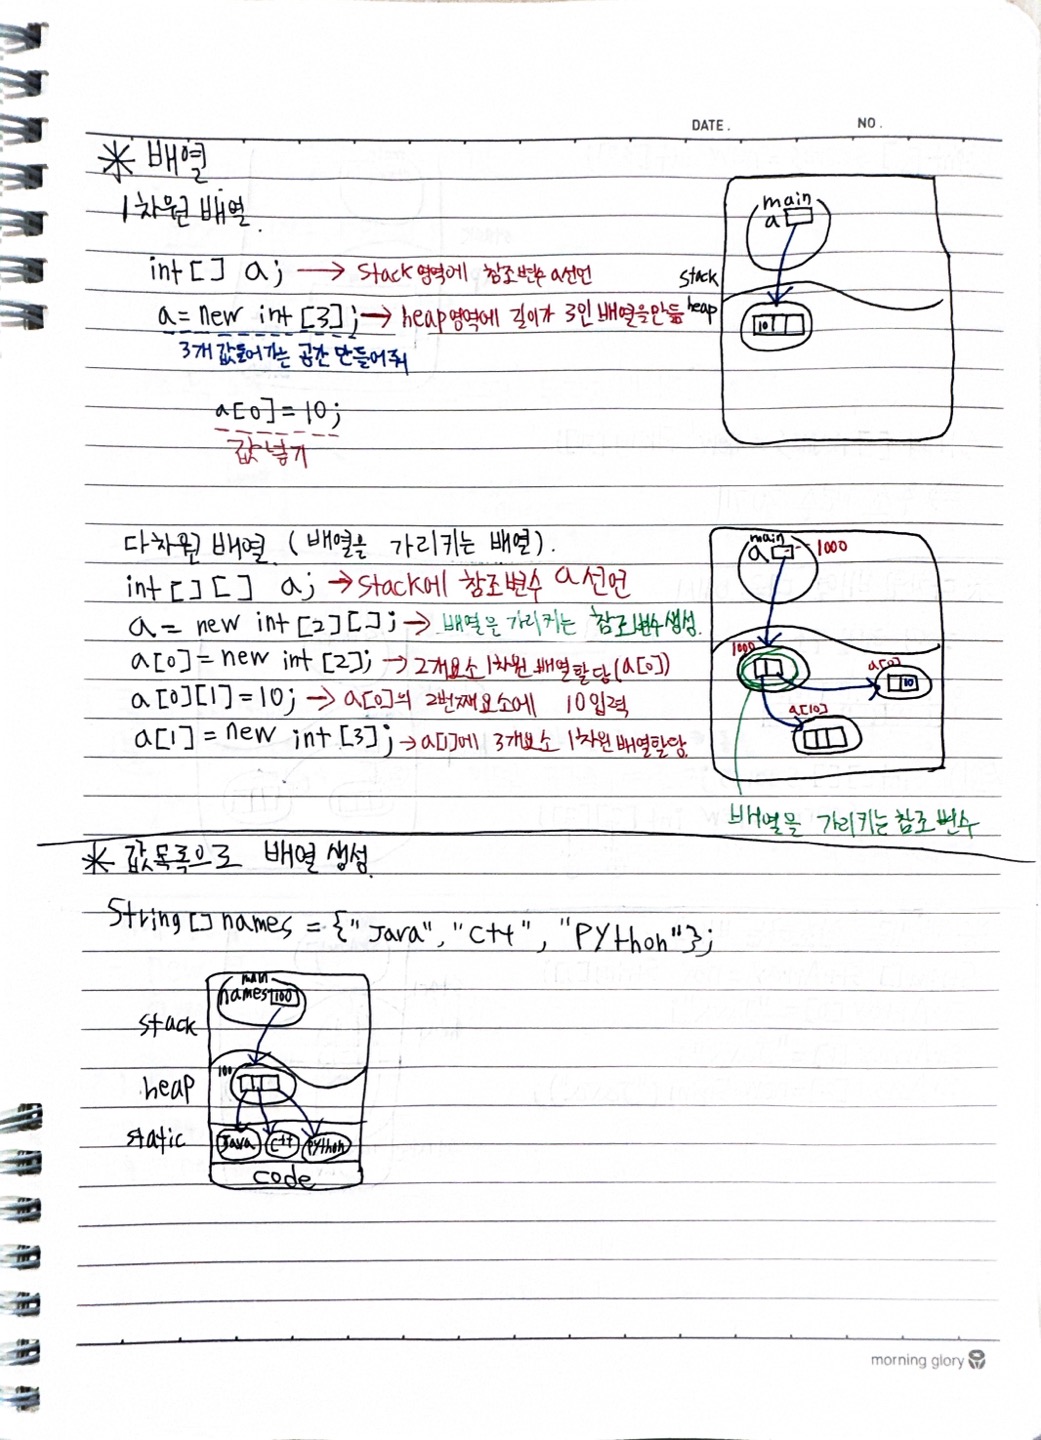 DATE. NO.
* 배열
1차원 배열.
int[] a; → Stack 영역에 참조변수 a선언
a = new int[3]; → heap영역에 길이가 3인 배열을만듦
3개 값들어가는 공간 만들어줘
a[0] = 10;
값 넣기
main
a
stack
heap
10
다차원 배열 (배열을 가리키는 배열).
int[][] a; → Stack에 참조변수 a 선언
a = new int[2][]; → 배열을 가리키는 참조변수생성.
a[0] = new int[2]; → 2개요소 1차원 배열할당(a[0])
a[0][1] = 10; → a[0]의 2번째요소에 10입력
a[1] = new int[3]; → a[1]에 3개요소 1차원배열할당
main
a 1000
1000
a[0]
10
배열을 가리키는 참조변수
* 값목록으로 배열 생성.
String[] names = {"Java", "C++", "PYthon"};
main
names 100
stack
100
heap
static
Java C++ PYthon
code
morning glory